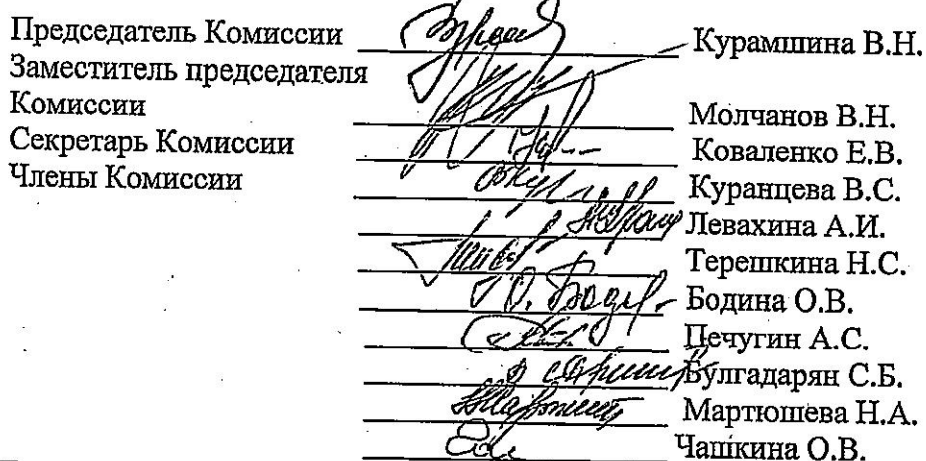 Председатель Комиссии Курамшина В.Н.
Заместитель председателя
Комиссии Молчанов В.Н.
Секретарь Комиссии Коваленко Е.В.
Члены Комиссии Куранцева В.С.
Левахина А.И.
Терешкина Н.С.
Бодина О.В.
Печугин А.С.
Булгадарян С.Б.
Мартюшева Н.А.
Чашкина О.В.